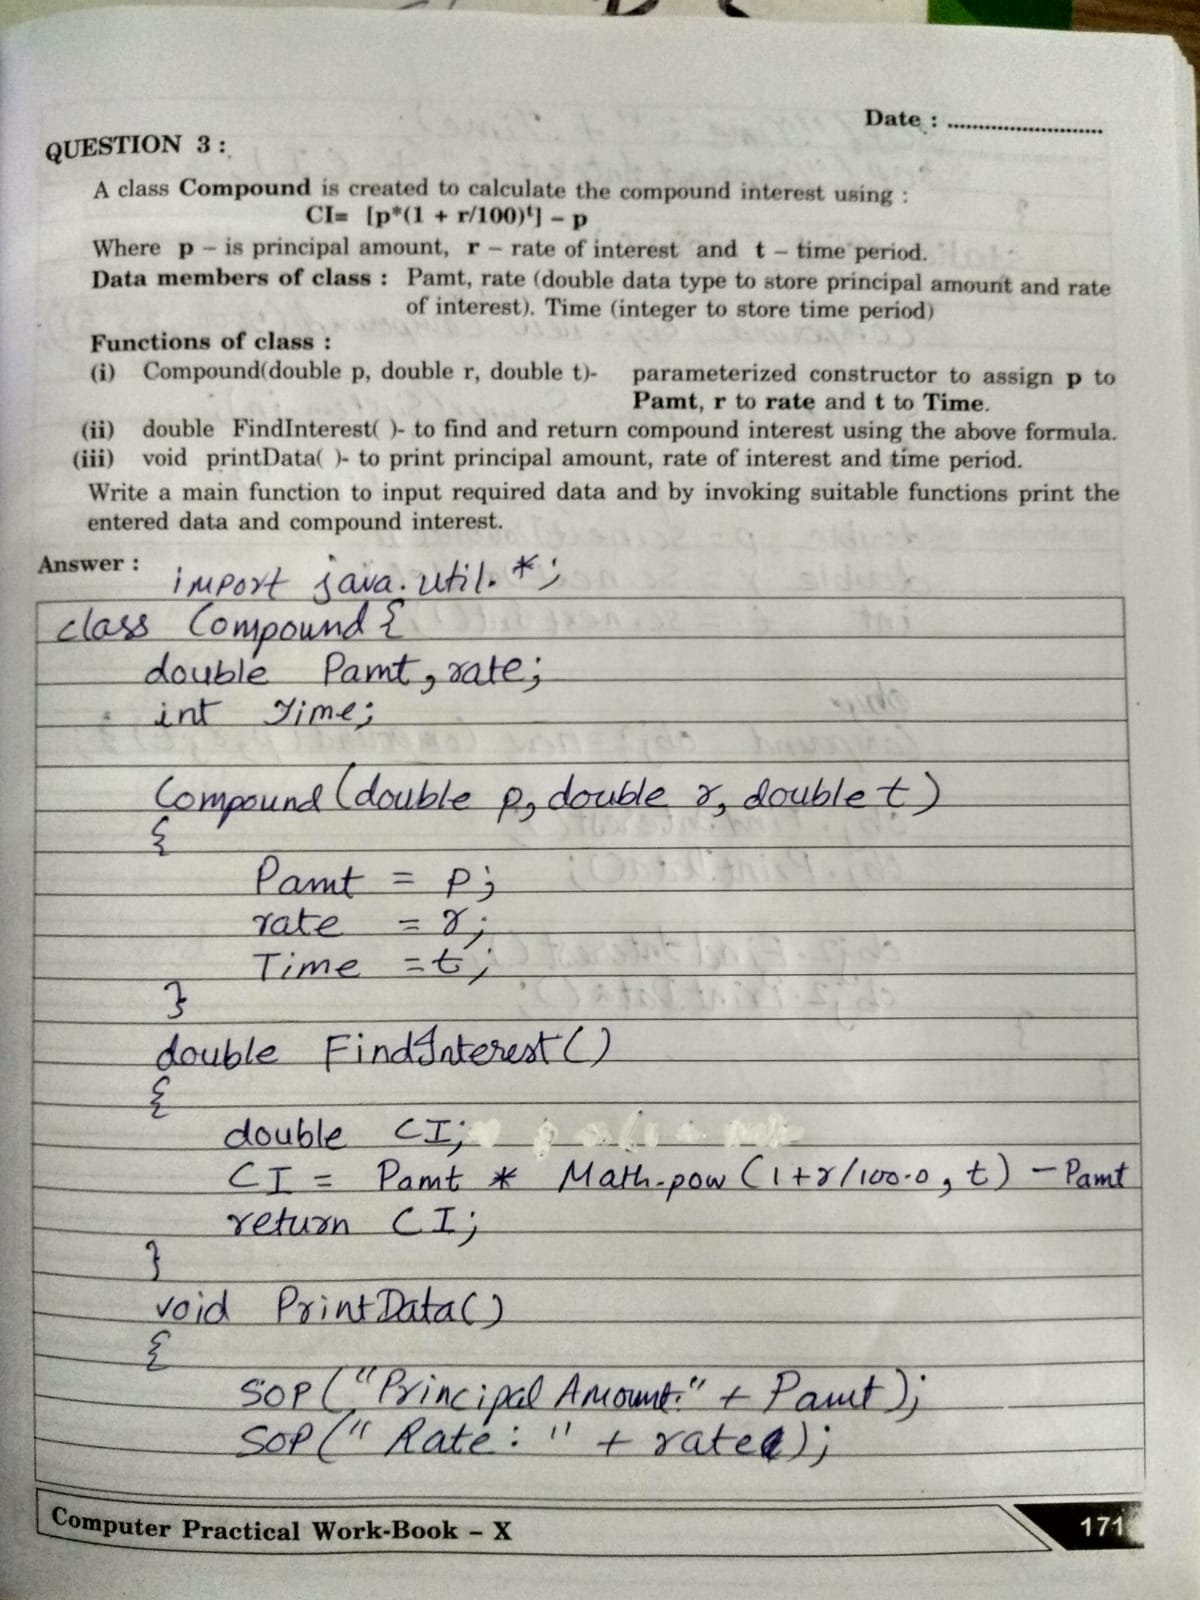 Date : ............................
QUESTION 3 :
A class Compound is created to calculate the compound interest using :
CI= [p*(1 + r/100)ᵗ] – p
Where p – is principal amount, r – rate of interest and t – time period.
Data members of class : Pamt, rate (double data type to store principal amount and rate
of interest). Time (integer to store time period)
Functions of class :
(i) Compound(double p, double r, double t)- parameterized constructor to assign p to
Pamt, r to rate and t to Time.
(ii) double FindInterest( )- to find and return compound interest using the above formula.
(iii) void printData( )- to print principal amount, rate of interest and time period.
Write a main function to input required data and by invoking suitable functions print the
entered data and compound interest.
Answer :
import java.util.*;
class Compound {
double Pamt, rate;
int Time;
Compound (double p, double r, double t)
{
Pamt = p;
rate = r;
Time = t;
}
double FindInterest()
{
double CI;
CI = Pamt * Math.pow (1+r/100.0, t) – Pamt
return CI;
}
void PrintData()
{
SOP ("Principal Amount:" + Pamt);
SOP (" Rate : " + rate);
Computer Practical Work-Book – X
171